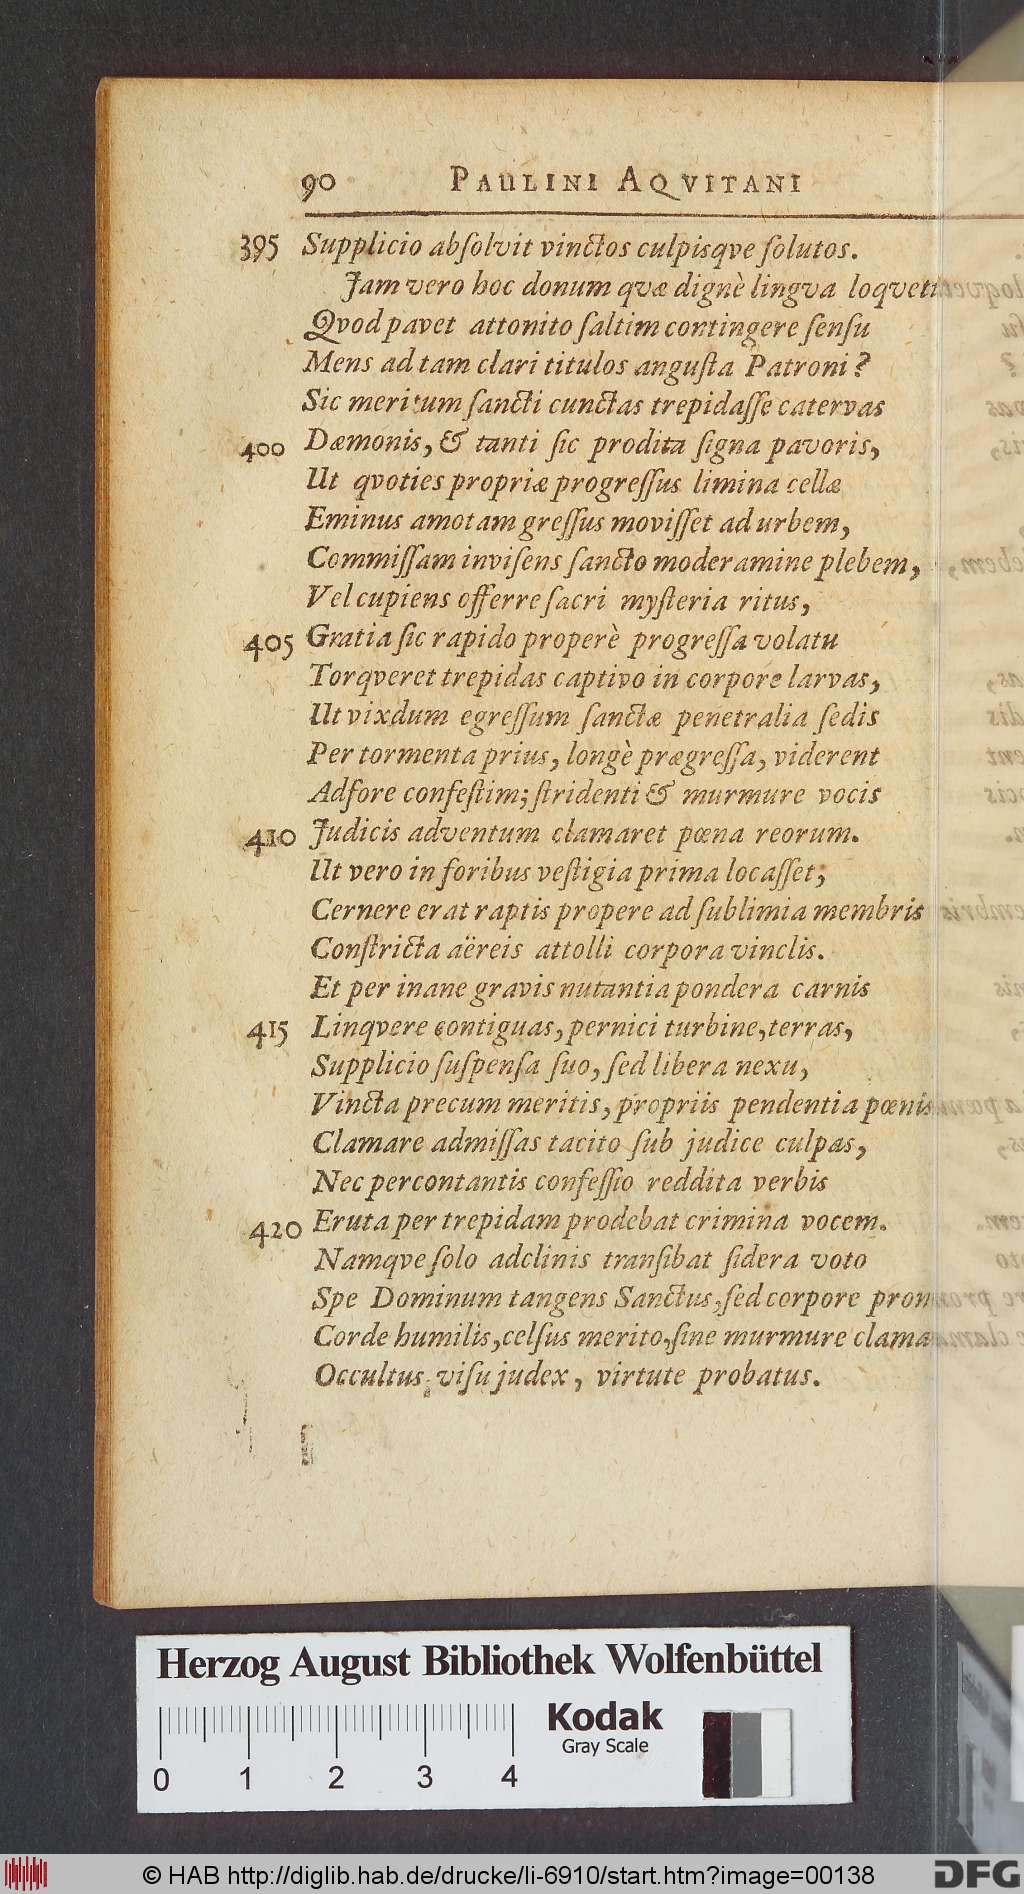 90 PAULINI AQVITANI
395 Supplicio abſolvit vinctos culpisqve ſolutos.
Jam vero hoc donum qvæ dignè lingva loqveti
Qvod pavet attonito ſaltim contingere ſenſu
Mens ad tam clari titulos anguſta Patroni?
Sic meritum ſancti cunctas trepidaſſe catervas
400 Dæmonis, & tanti ſic prodita ſigna pavoris,
Ut qvoties propriæ progreſſus limina cellæ
Eminus amotam greſſus moviſſet ad urbem,
Commiſſam inviſens ſancto moderamine plebem,
Vel cupiens offerre ſacri myſteria ritus,
405 Gratia ſic rapido properè progreſſa volatu
Torqveret trepidas captivo in corpore larvas,
Ut vixdum egreſſum ſanctæ penetralia ſedis
Per tormenta prius, longè prægreſſa, viderent
Adfore confeſtim; ſtridenti & murmure vocis
410 Judicis adventum clamaret pœna reorum.
Ut vero in foribus veſtigia prima locaſſet,
Cernere erat raptis propere ad ſublimia membris
Conſtricta aëreis attolli corpora vinclis.
Et per inane gravis nutantia pondera carnis
415 Linqvere contiguas, pernici turbine, terras,
Supplicio ſuſpenſa ſuo, ſed libera nexu,
Vincta precum meritis, propriis pendentia pœnis
Clamare admiſſas tacito ſub judice culpas,
Nec percontantis confeſſio reddita verbis
420 Eruta per trepidam prodebat crimina vocem.
Namqve ſolo adclinis tranſibat ſidera voto
Spe Dominum tangens Sanctus, ſed corpore pron
Corde humilis, celſus merito, ſine murmure clama
Occultus viſu judex, virtute probatus.
Herzog August Bibliothek Wolfenbüttel
Kodak
Gray Scale
0 1 2 3 4
© HAB http://diglib.hab.de/drucke/li-6910/start.htm?image=00138
DFG